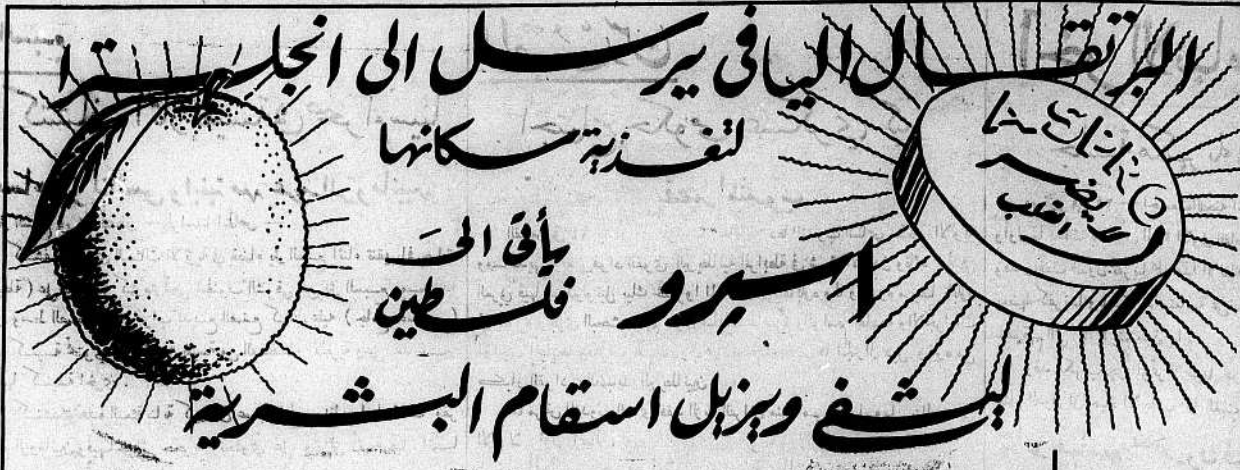 البرتقال اليافي يرسل الى انجلترا
لتغذية سكانها
اسبرو يأتى الىَ
فلسطين
ليشفي ويزيل اسقام البشرية
يضر
القلب